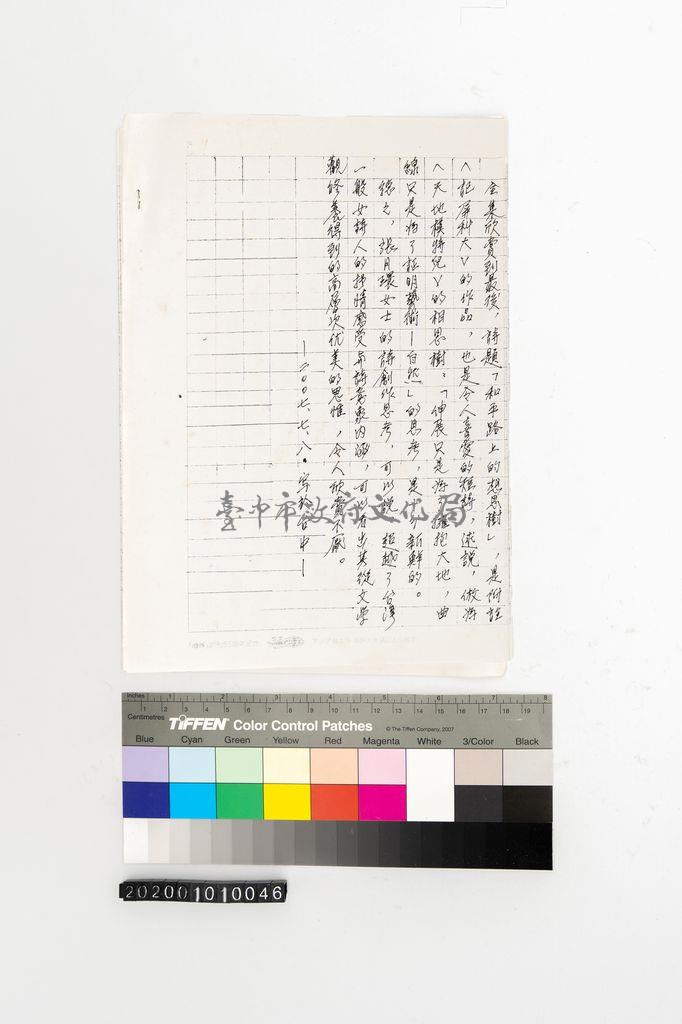 全集欣賞到最後，詩題「和平路上的想思樹」，是附註
〈記屏科大〉的作品，也是令人喜愛的短詩，述說，傲將
〈天地模特兒〉的相思樹：「伸展只是為擁抱大地，曲
線只是為了証明藝術－自然」的思考，是新鮮的。
總之，張月環女士的詩創作思考，可以說超越了台灣
一般女詩人的抒情感受與詩意象內涵，可以看出其從文学
觀修養得到的高層次优美的思惟，令人欣賞不厭。
－二００七、七、八．寫於台中－
臺中市政府文化局
Inches 1 2 3 4 5 6 7 8
Centimetres 1 2 3 4 5 6 7 8 9 10 11 12 13 14 15 16 17 18 19
TIFFEN Color Control Patches © The Tiffen Company, 2007
Blue Cyan Green Yellow Red Magenta White 3/Color Black
202001010046